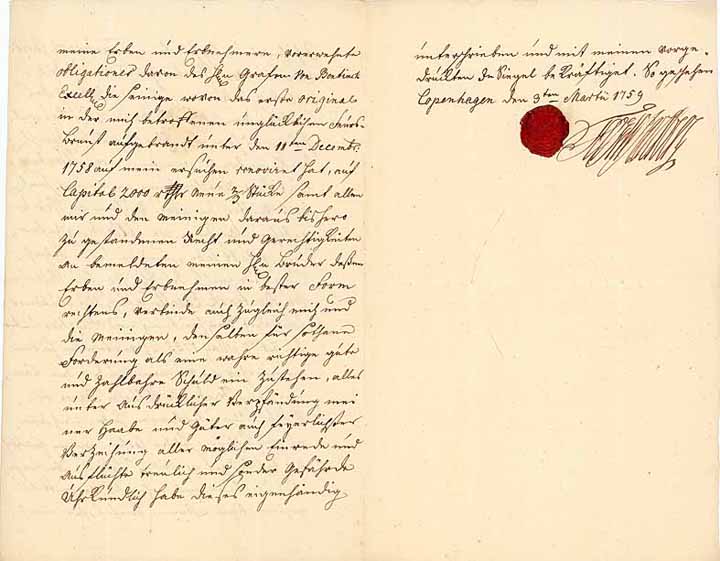 meine Erben und Erbnehmern, vorerwehnte
obligationes davon des HEn Grafen von Bentinck
Excell: die seinige wovon das erste original
in der mich betroffenen unglücklichen Feürs-
Brunst aufgebrandt unter den 11ten Decembr:
1758 auf mein ersuchen renoviret hat, auf
Capital 2000 rthlr Neüe 2/3 Stücke samt allen
mir und den Meinigen daraus bishero
zu gestandenen Recht und Gerechtigkeiten
an bemeldeten meinen HEn Bruder deßen
Erben und Erbnehmen in bester Form
rechtens, verbinde auch zugleich mich und
die Meinigen, denselben für sothane
Forderung als eine wahre richtige gute
und zahlbahre Schuld ein zustehen, alles
unter Ausdrücklicher Verpfändung mei
ner Haabe und Güter auch feyerlichster
Verzeihung aller möglichen Einrede und
Ausflüchte treulich und sonder Gefährde
Uhrkündlich habe dieses eigenhändig
unterschrieben und mit meinen vorge-
drückten Siegel bekräftiget. So geschehen
Copenhagen den 3ten Martii 1759